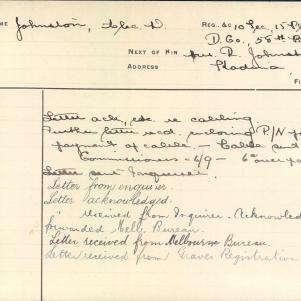 ME Johnston, Alec D. REG. &c 10 Sec, 15 Pl
D. Co, 58th B
NEXT OF KIN Mrs. R. Johnst
ADDRESS
FI
Letter ack, etc. re cabling
Further letter recd. enclosing P/N f
payment of cable — Cable sent
Commissioners — 49 —
Letter sent Inquirer.
Letter from enquirer.
Letter acknowledged.
" received from Inquirer. Acknowled
forwarded Melb. Bureau.
Letter received from Melbourne Bureau.
Letter received from Graves Registration